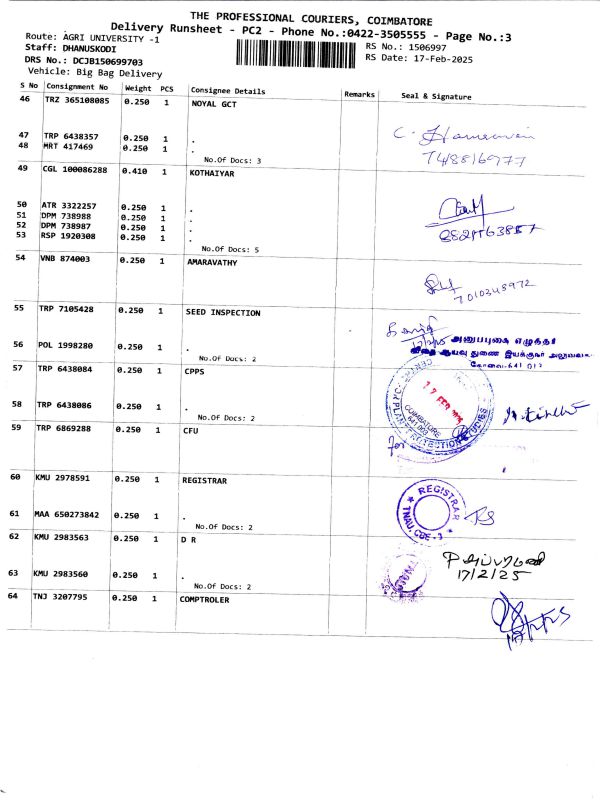 THE PROFESSIONAL COURIERS, COIMBATORE
Delivery Runsheet - PC2 - Phone No.:0422-3505555 - Page No.:3
Route: AGRI UNIVERSITY -1
RS No.: 1506997
Staff: DHANUSKODI
RS Date: 17-Feb-2025
DRS No.: DCJB150699703
Vehicle: Big Bag Delivery
S No Consignment No Weight PCS Consignee Details Remarks Seal & Signature
46 TRZ 365108085 0.250 1 NOYAL GCT
47 TRP 6438357 0.250 1 .
48 MRT 417469 0.250 1 .
No.Of Docs: 3
748816977
49 CGL 100086288 0.410 1 KOTHAIYAR
50 ATR 3322257 0.250 1 .
51 DPM 738988 0.250 1 .
52 DPM 738987 0.250 1 .
53 RSP 1920308 0.250 1 .
No.Of Docs: 5
54 VNB 874003 0.250 1 AMARAVATHY
7010348972
55 TRP 7105428 0.250 1 SEED INSPECTION
56 POL 1998280 0.250 1 .
No.Of Docs: 2
அலுவலக எழுத்தர்
விதை ஆய்வு துணை இயக்குநர் அலுவலகம்
கோவை-641 013
57 TRP 6438084 0.250 1 CPPS
58 TRP 6438086 0.250 1 .
No.Of Docs: 2
17 FEB 2025
COIMBATORE
641 003
PLANT PROTECTION STUDIES
for
59 TRP 6869288 0.250 1 CFU
60 KMU 2978591 0.250 1 REGISTRAR
61 MAA 650273842 0.250 1 .
No.Of Docs: 2
REGISTRAR
TNAU, CBE - 3
62 KMU 2983563 0.250 1 D R
63 KMU 2983560 0.250 1 .
No.Of Docs: 2
17/2/25
64 TNJ 3207795 0.250 1 COMPTROLER